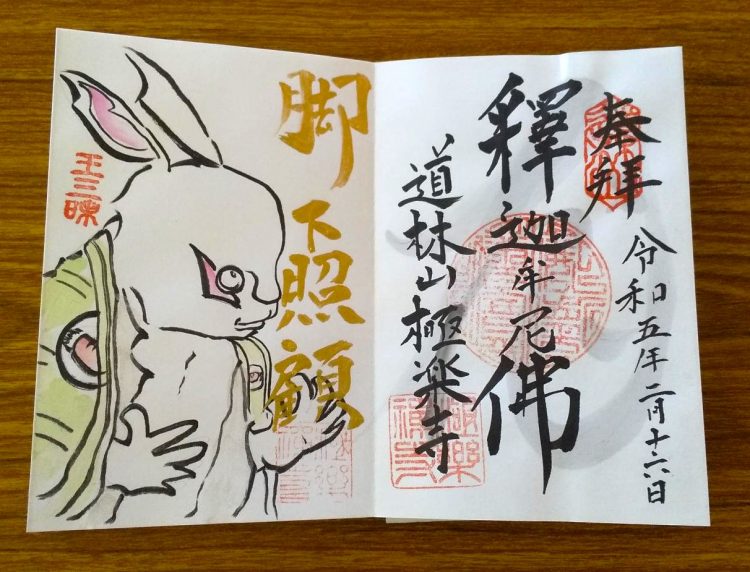 奉拝
令和五年二月十六日
釋迦牟尼佛
道林山極楽寺
脚下照顧
王三昧